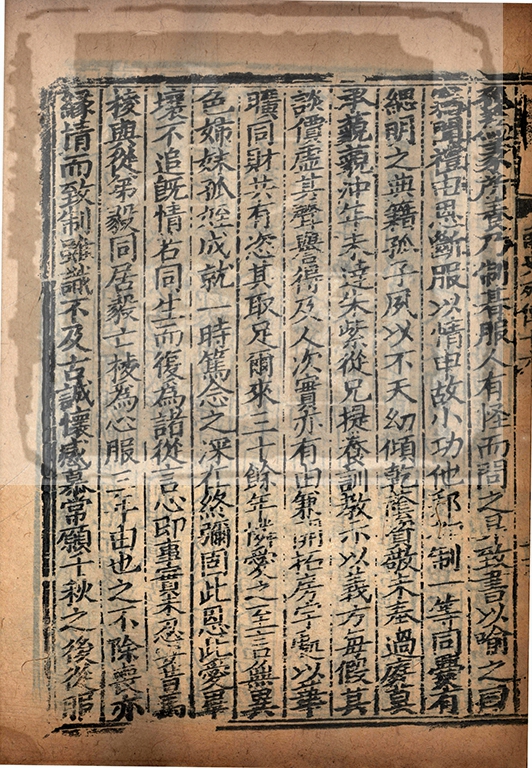 所養乃制朞服人有怪而問之昱致書以喻之曰
聞禮由恩斷服以情申故小功他邦加制一等同爨有
緦明之典籍孤子夙以不天幼傾乾蔭資敬未奉過庭莫
承藐藐沖年未達朱紫從兄提養訓敎示以義方每假其
談價虛其聲譽得及人次實亦有由兼開拓房宇處以華
曠同財共有恣其取足爾來三十餘年憐愛之至言無異
色姉妹孤姪成就一時篤念之深在終彌固此恩此愛畢
壤不追旣情若同生而復為諸從言心即事實未忍昔馬
棱與從弟毅同居毅亡棱為心服三年由也之不除喪亦
緣情而致制雖識不及古誠懷感慕常願千秋之後從